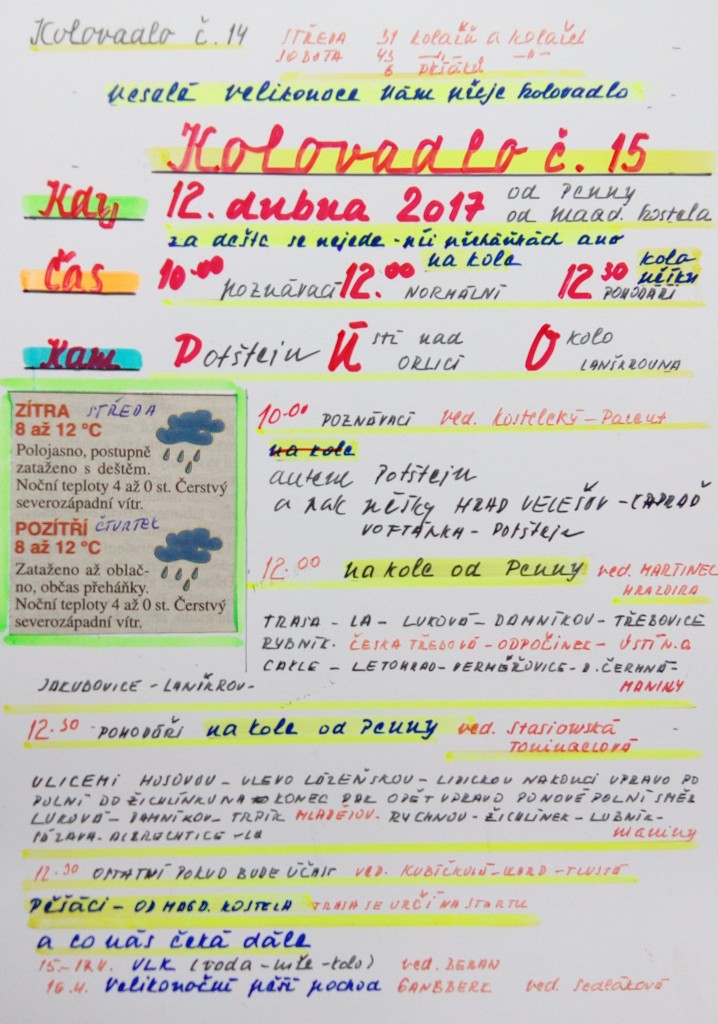 Kolovadlo č. 14
STŘEDA 31 kolařů a kolařek
SOBOTA 43 -„- -„-
6 PĚŠÁKŮ
veselé velikonoce vám přeje kolovadlo
Kolovadlo č. 15
Kdy 12. dubna 2017 od Penny
od magd. kostela
za deště se nejede - při přeháňkách ano
Čas 10.00 poznávací 12.00 na kole NORMÁLNÍ 12 30 POHODÁŘI kola pěšky
Kam Potštejn ÚSTÍ nad ORLICÍ OKOLO LANŠKROUNA
ZÍTRA STŘEDA
8 až 12 °C
Polojasno, postupně
zataženo s deštěm.
Noční teploty 4 až 0 st. Čerstvý
severozápadní vítr.
POZÍTŘÍ ČTVRTEK
8 až 12 °C
Zataženo až oblač-
no, občas přeháňky.
Noční teploty 4 až 0 st. Čerstvý
severozápadní vítr.
10.00 POZNÁVACÍ ved. Kostelecký -
na kole
autem Potštejn
a pak pěšky HRAD VELEŠOV -
VOŘTÁŇKA - Potštejn
12.00 na kole od Penny ved. MARTINEC
HRAZDIRA
TRASA - LA - LUKOVÁ - DAMNÍKOV - TŘEBOVICE
RYBNÍK. ČESKÁ TŘEBOVÁ - ODPOČINEK - ÚSTÍ N.O
CAKLE - LETOHRAD - VERMĚŘOVICE - D. ČERMNÁ -
JAKUBOVICE - LANŠKROU- MANINY
12.30 POHODÁŘI na kole od Penny ved. Stasiowská
Tominaciová
ULICEMI HUSOVOU - VLEVO LÁZEŇSKOU - LIDICKOU NA KONCI VPRAVO PO
POLNÍ DO ŽICHLÍNKU NA KONEC PAK OPĚT VPRAVO PO NOVÉ POLNÍ SMĚR
LUKOVÁ - DAMNÍKOV - TRPÍK MLADEJOV. RYCHNOV - ŽICHLÍNEK - LUBNÍK -
SÁZAVA. ALBRECHTICE - LA maniny
12.30 OSTATNÍ POKUD BUDE ÚČAST VED. KUBÍČKOVÁ - - TLUSTÁ
PĚŠÁCI - OD MAGD. KOSTELA TRASA SE URČÍ NA STARTU
a co nás čeká dále
15.-17.IV. VLK (voda - - kolo) ved. BERAN
16.4. Velikonoční pěší pochod GANSBERK ved. Sedláková